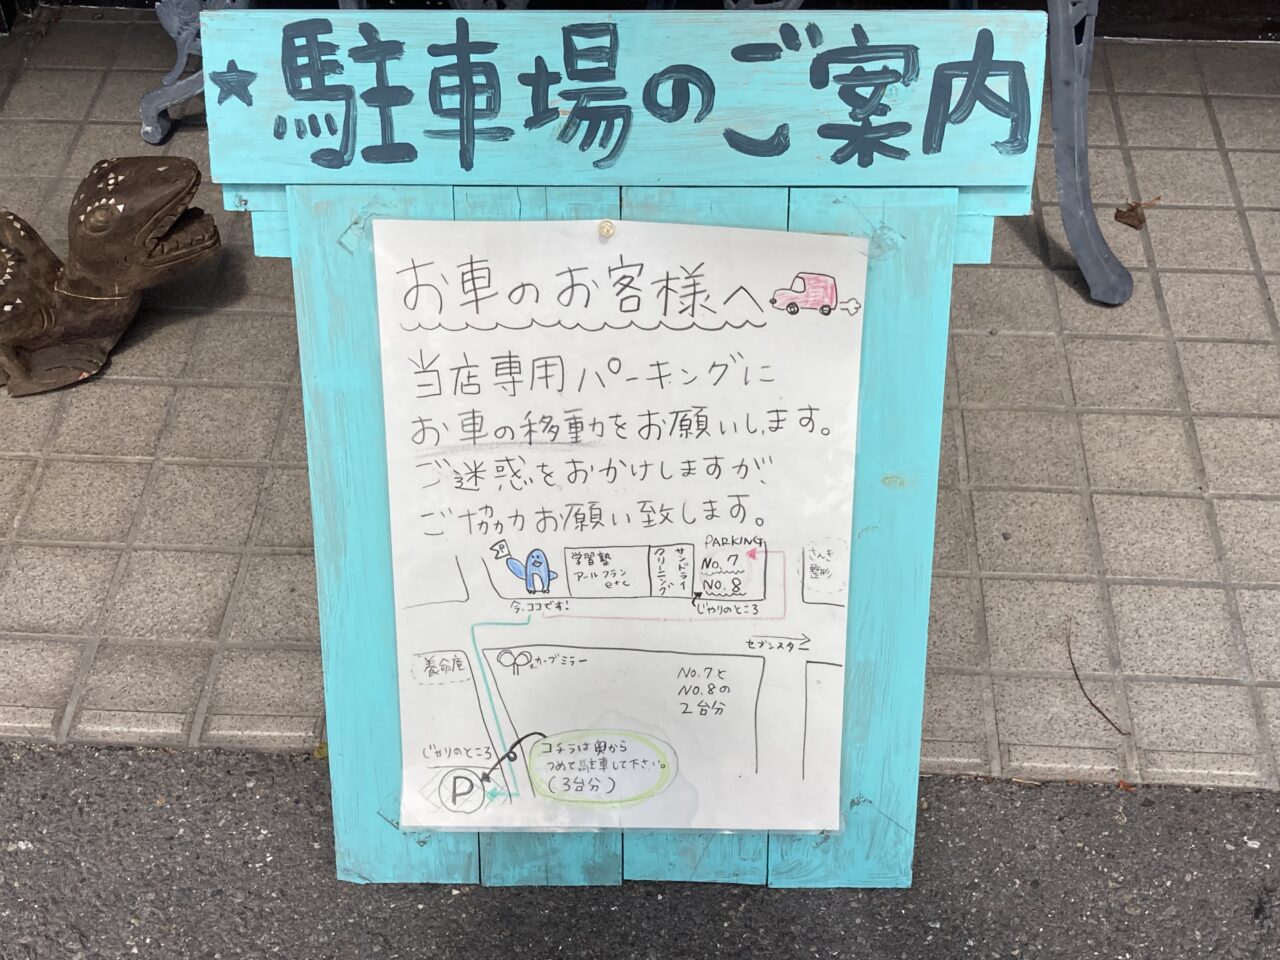 ★駐車場のご案内
お車のお客様へ
当店専用パーキングに
お車の移動をお願いします。
ご迷惑をおかけしますが、
ご協力お願い致します。
PARKING
P
学習塾
アールプラン
etc
サンドライ
クリーニング
No.7
No.8
さんき
整形
今、ココです!
じゃりのところ
セブンスター
養命庵
カーブミラー
No.7と
No.8の
2台分
じゃりのところ
コチラは奥から
つめて駐車して下さい。
(3台分)
P